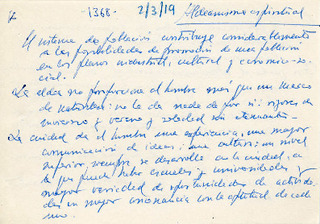 1368.
2/3/19
Urbanismo espiritual
El sistema de población contribuye considerablemente
a las posibilidades de promoción de una población
en los planos industrial, cultural y económico-so-
cial.
La aldea no proporciona al hombre más que un marco
de naturaleza: no le da nada de por sí: rigores de
invierno y verano y soledad sin elementos.
La ciudad da al hombre una experiencia, una mayor
comunicación de ideas; una cultura: un nivel
superior siempre se desarrolla en la ciudad, en
la que puede haber escuelas y universidades y
mayor variedad de oportunidades de activida-
des en mayor consonancia con la aptitud de cada
uno.